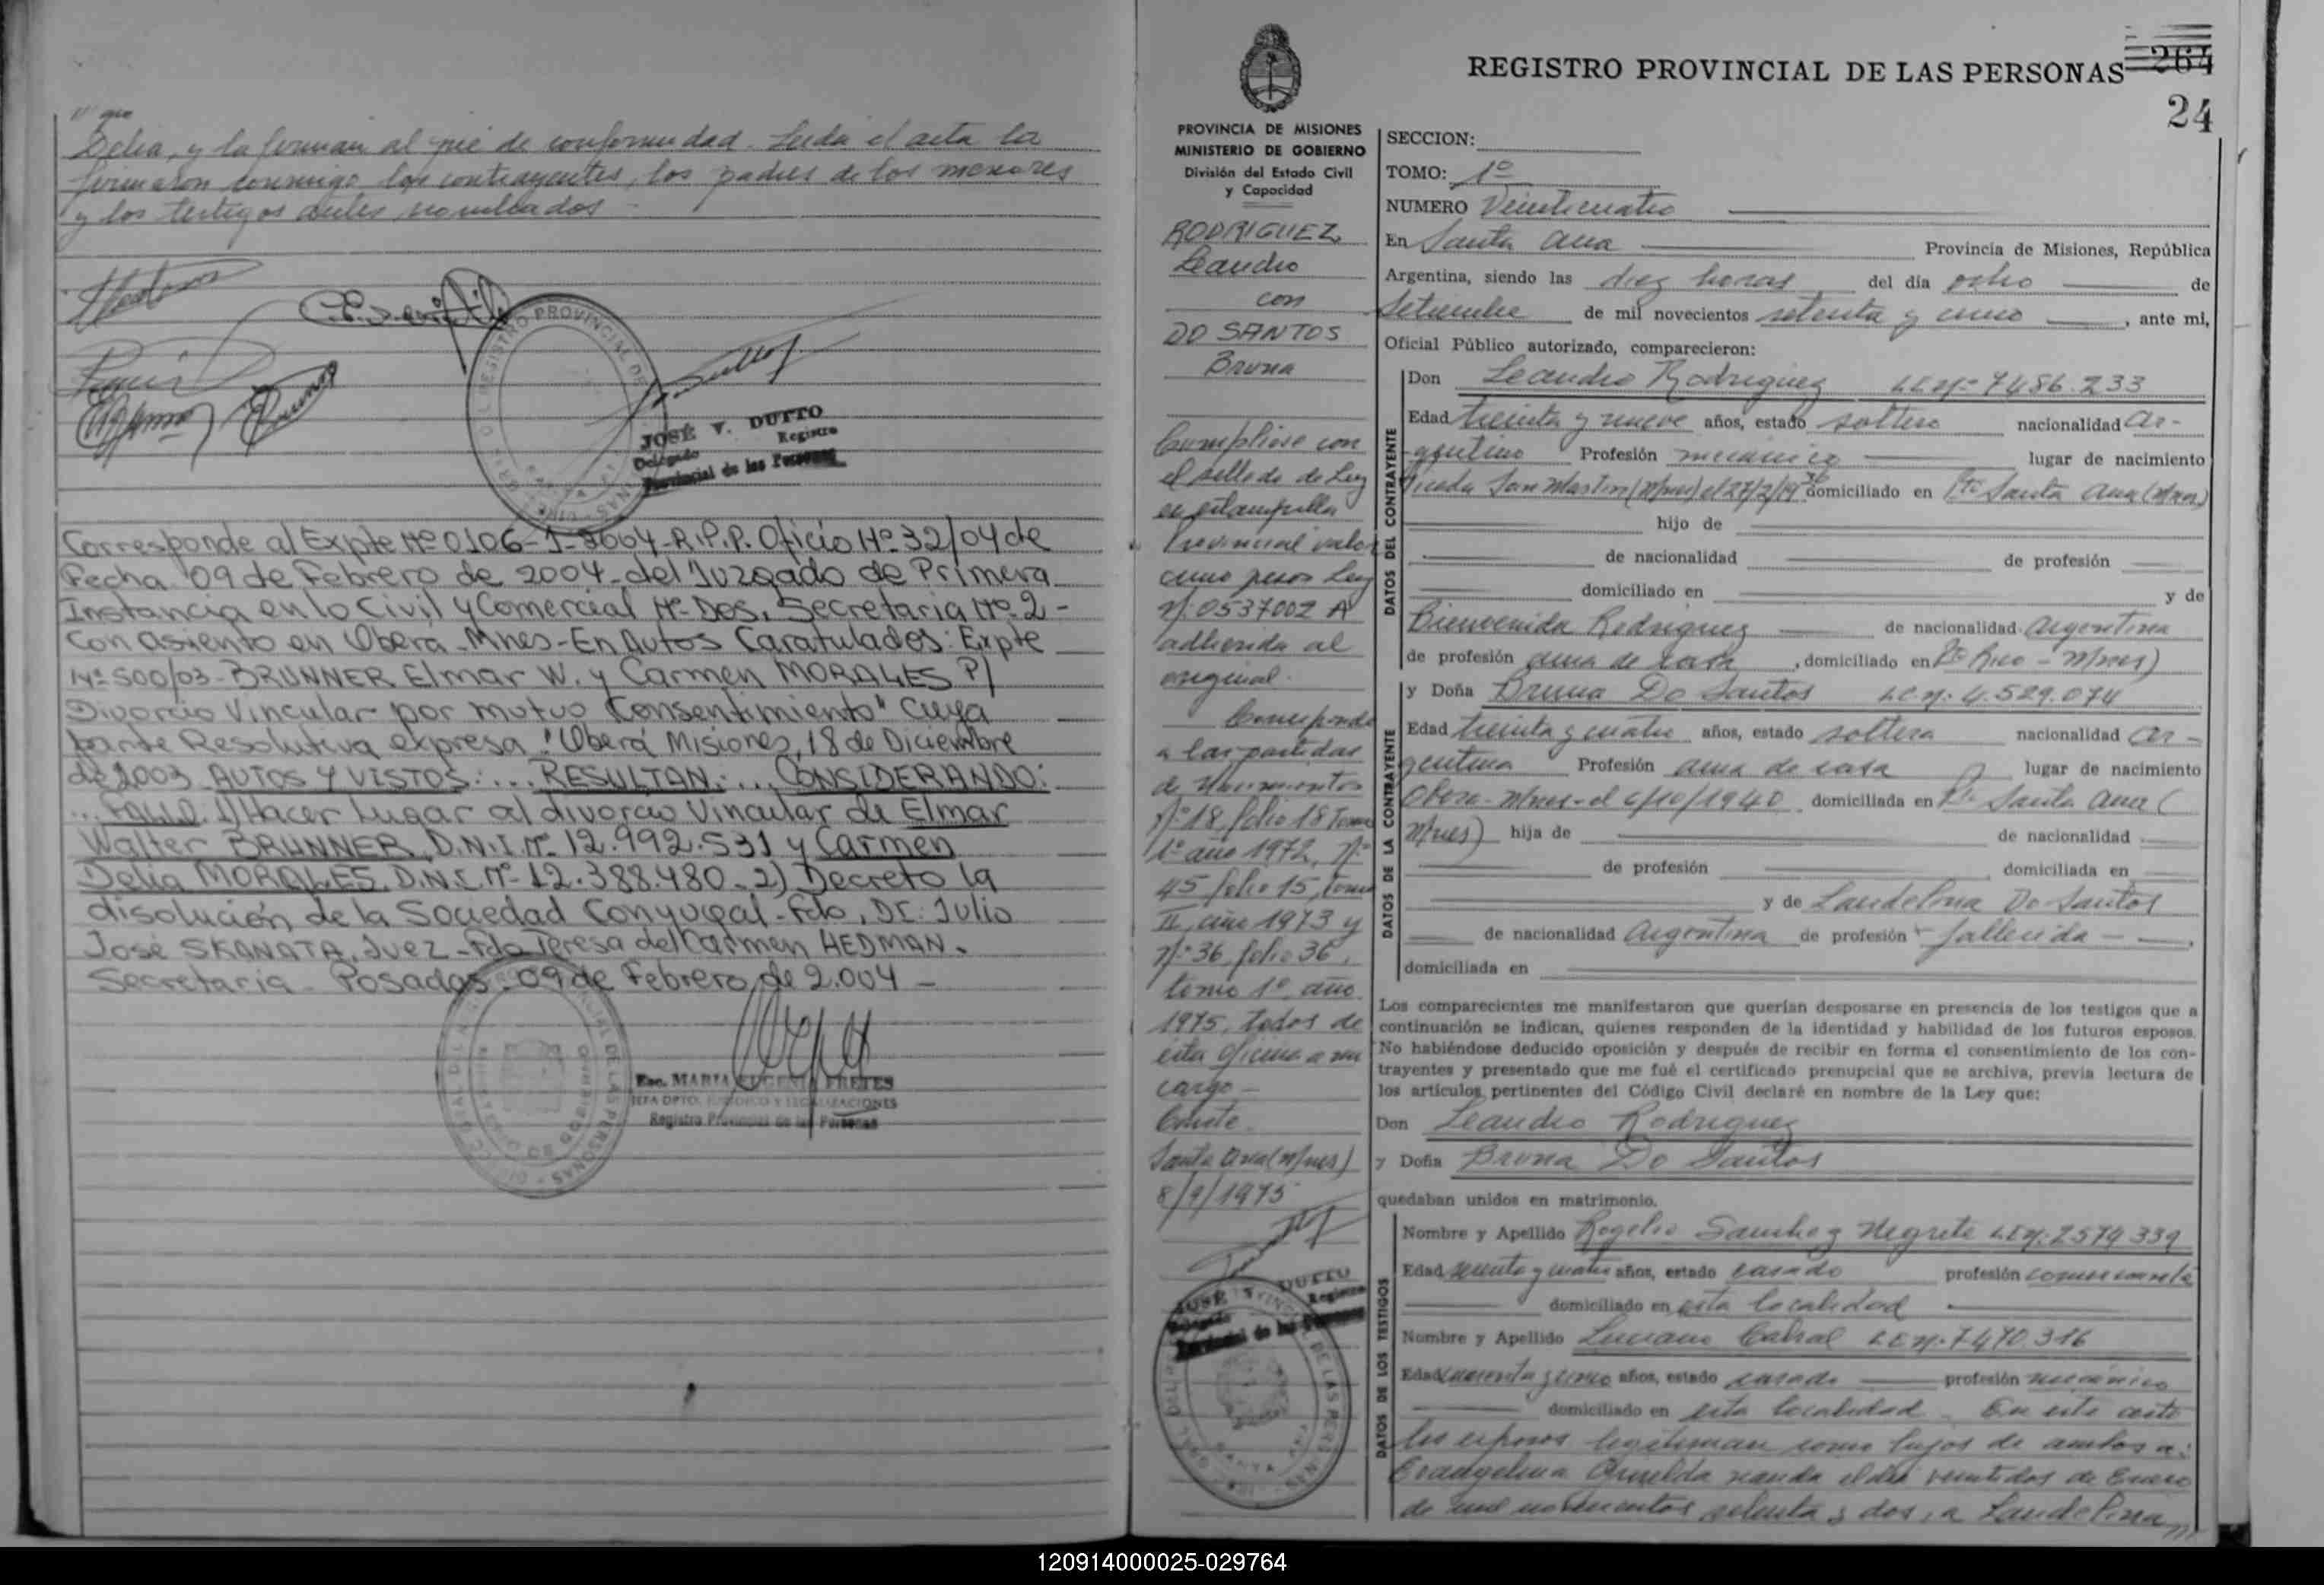 Delia, y la firman al pié de conformidad. Leida el acta la
firmaron conmigo los contrayentes, los padres de los menores
y los testigos antes nombrados
REGISTRO PROVINCIAL DE
JOSÉ V. DUTTO
Delegado Registro
Provincial de las Personas
Corresponde al Expte Nº 0106-J-2004-R.P.P. Oficio Nº 32/04 de
Fecha 09 de Febrero de 2004 del Juzgado de Primera
Instancia en lo Civil y Comercial Nº Dos, Secretaria Nº 2-
Con asiento en Oberá-Mnes-En Autos Caratulados: Expte
Nº 500/03-BRUNNER Elmar W. y Carmen MORALES P/
Divorcio Vincular por mutuo Consentimiento" Cuya
parte Resolutiva expresa "Oberá Misiones, 18 de Diciembre
de 2003 AUTOS Y VISTOS:... RESULTAN:... CONSIDERANDO:
...FALLO. 1) Hacer Lugar al divorcio Vincular de Elmar
Walter BRUNNER, D.N.I. nº 12.992.531 y Carmen
Delia MORALES. D.N.I. Nº 12.388.480-2) Decreto la
disolución de la Sociedad Conyugal-Fdo, Dr: Julio
José SKANATA, Juez-Fdo Teresa del Carmen HEDMAN.
Secretaria - Posadas 09 de Febrero de 2.004 -
Esc. MARIA EUGENIA FRETES
JEFA DPTO. JURIDICO Y LEGALIZACIONES
Registro Provincial de las Personas
REGISTRO PROVINCIAL DE LAS PERSONAS 264
24
PROVINCIA DE MISIONES
MINISTERIO DE GOBIERNO
División del Estado Civil
y Capacidad
RODRIGUEZ
Leandro
con
DO SANTOS
Bruna
Cumpliose con
el sellado de Ley
en estampilla
Provincial valor
cinco pesos Ley
Nº 0537002 A
adherida al
original.
Corresponde
a las partidas
de Nacimientos
Nº 18 folio 18 Tomo
1º año 1972, Nº
45 folio 15, tomo
II, año 1973 y
Nº 36 folio 36,
tomo 1º año
1975, todos de
esta oficina a mi
cargo -
Conste.
Santa Ana (Mnes)
8/9/1975
JOSÉ V. DUTTO
Delegado Registro
Provincial de las Personas
SECCION:
TOMO: 1º
NUMERO Veinticuatro
En Santa Ana Provincia de Misiones, República
Argentina, siendo las diez horas del día ocho de
Setiembre de mil novecientos setenta y cinco, ante mi,
Oficial Público autorizado, comparecieron:
DATOS DEL CONTRAYENTE
Don Leandro Rodriguez L.E.Nº 7486.233
Edad treinta y nueve años, estado soltero nacionalidad ar-
gentino Profesión mecánico lugar de nacimiento
Picada San Martin (Mnes) el 27/2/1936 domiciliado en Pto Santa Ana (Mnes)
hijo de
de nacionalidad de profesión
domiciliado en y de
Bienvenida Rodriguez de nacionalidad argentina
de profesión ama de casa, domiciliado en Pto Rico - Mnes)
DATOS DE LA CONTRAYENTE
y Doña Bruna Do Santos L.C.Nº 4.529.074
Edad treinta y cuatro años, estado soltera nacionalidad ar-
gentina Profesión ama de casa lugar de nacimiento
Obera-Mnes-el 6/10/1940 domiciliada en Pto Santa Ana (
Mnes) hija de de nacionalidad
de profesión, domiciliada en
y de Laudelina Do Santos
de nacionalidad Argentina de profesión fallecida
domiciliada en
Los comparecientes me manifestaron que querían desposarse en presencia de los testigos que a
continuación se indican, quienes responden de la identidad y habilidad de los futuros esposos.
No habiéndose deducido oposición y después de recibir en forma el consentimiento de los con-
trayentes y presentado que me fué el certificado prenupcial que se archiva, previa lectura de
los artículos pertinentes del Código Civil declaré en nombre de la Ley que:
Don Leandro Rodriguez
y Doña Bruna Do Santos
quedaban unidos en matrimonio.
DATOS DE LOS TESTIGOS
Nombre y Apellido Rogelio Sanchez Negrete L.E.Nº 2579339
Edad sesenta y cuatro años, estado casado profesión comerciante
domiciliado en esta localidad
Nombre y Apellido Luciano Cabral L.E.Nº 7470.316
Edad cuarenta y cinco años, estado casado profesión mecánico
domiciliado en esta localidad - En este acto
los esposos legitiman como hijos de ambos a:
Evangelina nacida el día veintidos de Enero
de mil novecientos setenta y dos, a Laudelina
120914000025-029764